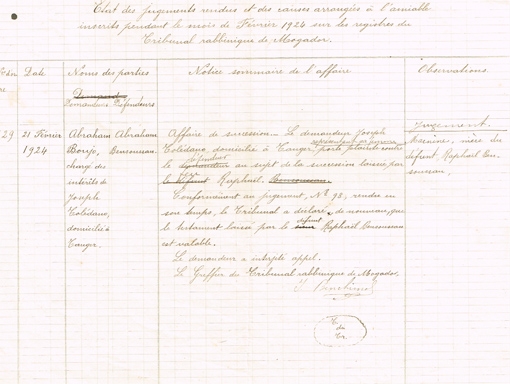 Etat des jugements rendus et des causes arrangées à l'amiable
inscrits pendant le mois de Février 1924 sur les registres du
Tribunal rabbinique de Mogador.
Date
Noms des parties
Notice sommaire de l'affaire
Observations.
Demandeurs Défendeurs
29
21 Février
1924
Abraham
Boujo,
chargé des
intérêts de
Joseph
Tolédano,
domicilié à
Tanger.
Abraham
Bensoussan
Affaire de succession. Le demandeur Joseph
Tolédano domicilié à Tanger, porte plainte contre
le défendeur au sujet de la succession laissée par
le défunt Raphaël. Bensoussan.
Conformément au jugement, N° 92, rendu en
son temps, le Tribunal a déclaré, de nouveau, que
le testament laissé par le défunt Raphaël Bensoussan
est valable.
Le demandeur a interjeté appel.
Le Greffier du Tribunal rabbinique de Mogador,
Jugement.
mère du
défunt Raphaël Ben
soussan.
T.
du
Tr.